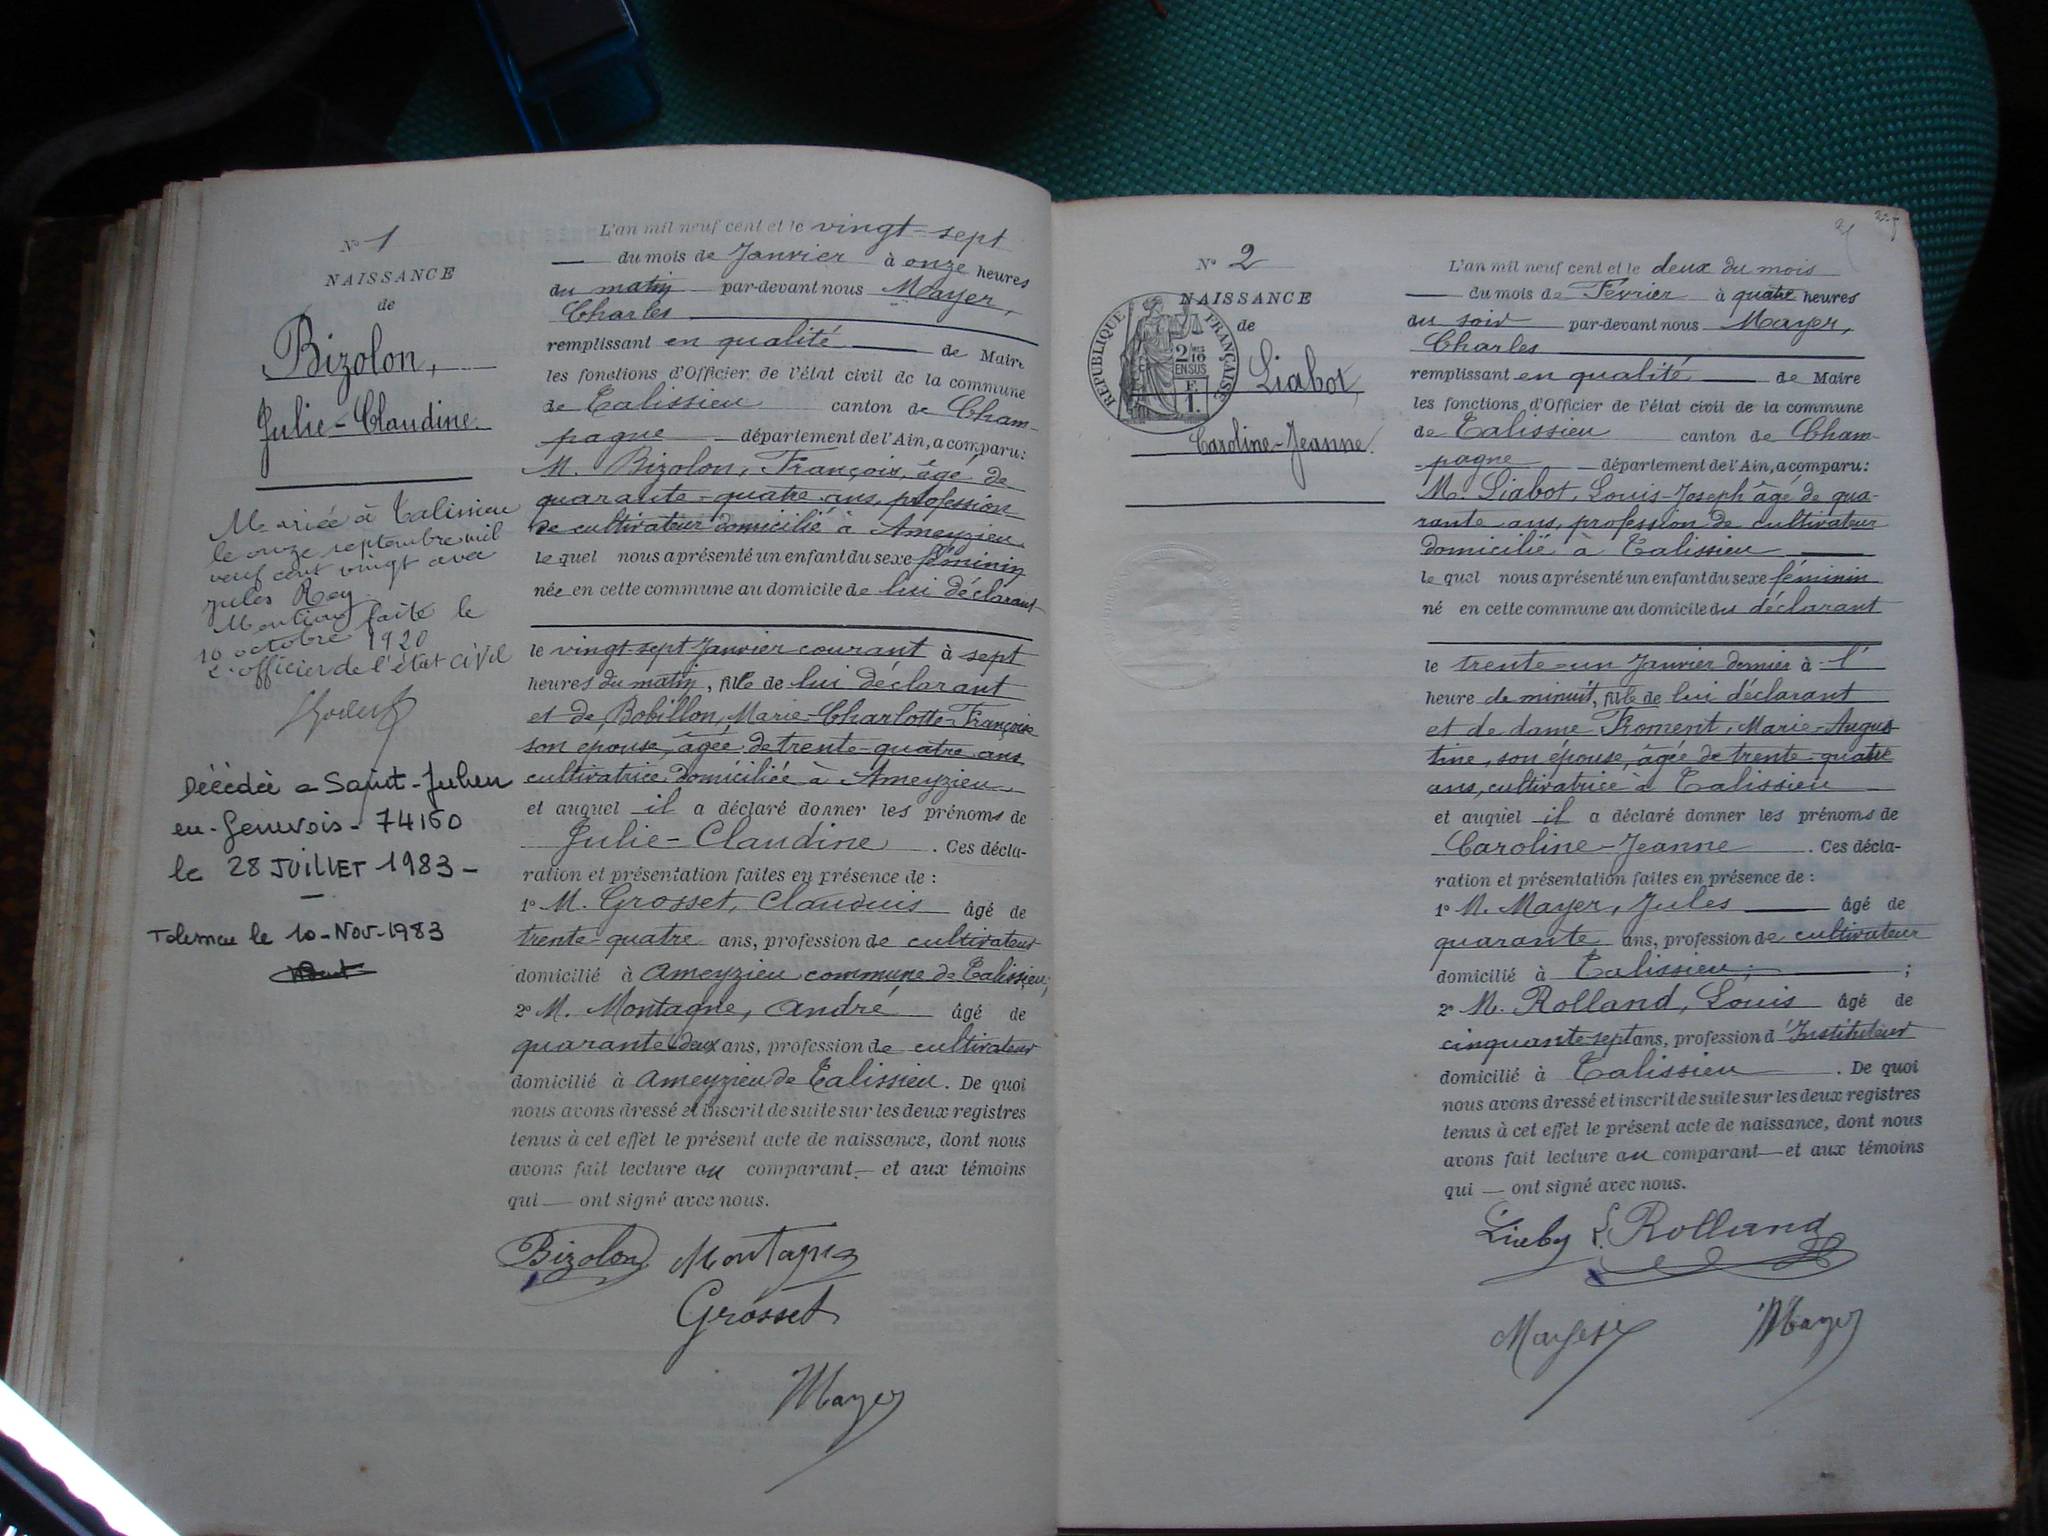 N° 1
NAISSANCE
de
Bizolon,
Julie-Claudine.
Mariée à Talissieu
le onze septembre mil
neuf cent vingt avec
Jules Rey
Mention faite le
10 octobre 1920
L'officier de l'état civil
Décédée a Saint-Julien
en-Genevois - 74160
le 28 JUILLET 1983 -
le 10-Nov-1983
L'an mil neuf cent et le vingt-sept
du mois de Janvier à onze heures
du matin par-devant nous Mayer,
Charles
remplissant en qualité de Maire
les fonctions d'Officier de l'état civil de la commune
de Talissieu canton de Cham-
pagne département de l'Ain, a comparu:
M. Bizolon, François, âgé de
quarante-quatre ans, profession
de cultivateur domicilié à Ameyzieu
le quel nous a présenté un enfant du sexe féminin
née en cette commune au domicile de lui déclarant
le vingt-sept Janvier courant à sept
heures du matin, fille de lui déclarant
et de Bobillon, Marie-Charlotte-Françoise
son épouse, âgée de trente-quatre ans
cultivatrice domiciliée à Ameyzieu
et auquel il a déclaré donner les prénoms de
Julie-Claudine. Ces décla-
ration et présentation faites en présence de :
1° M. Grosset, Claudius âgé de
trente-quatre ans, profession de cultivateur
domicilié à Ameyzieu commune de Talissieu;
2° M. Montagne, André âgé de
quarante deux ans, profession de cultivateur
domicilié à Ameyzieu de Talissieu. De quoi
nous avons dressé et inscrit de suite sur les deux registres
tenus à cet effet le présent acte de naissance, dont nous
avons fait lecture au comparant — et aux témoins
qui — ont signé avec nous.
Bizolon Montagne
Grosset
Mayer
N° 2
NAISSANCE
de
RÉPUBLIQUE FRANÇAISE
2/10
EN SUS
F.
1.
Liabot,
Caroline-Jeanne.
L'an mil neuf cent et le deux du mois
du mois de Février à quatre heures
du soir par-devant nous Mayer,
Charles
remplissant en qualité de Maire
les fonctions d'Officier de l'état civil de la commune
de Talissieu canton de Cham-
pagne département de l'Ain, a comparu:
M. Liabot, Louis-Joseph âgé de qua-
rante ans, profession de cultivateur
domicilié à Talissieu
le quel nous a présenté un enfant du sexe féminin
né en cette commune au domicile du déclarant
le trente-un Janvier dernier à l'
heure de minuit, fille de lui déclarant
et de dame Froment, Marie-Augus-
tine, son épouse, âgée de trente-quatre
ans, cultivatrice à Talissieu
et auquel il a déclaré donner les prénoms de
Caroline-Jeanne. Ces décla-
ration et présentation faites en présence de :
1° M. Mayer, Jules âgé de
quarante ans, profession de cultivateur
domicilié à Talissieu;
2° M. Rolland, Louis âgé de
cinquante-sept ans, profession d'Instituteur
domicilié à Talissieu. De quoi
nous avons dressé et inscrit de suite sur les deux registres
tenus à cet effet le présent acte de naissance, dont nous
avons fait lecture au comparant — et aux témoins
qui — ont signé avec nous.
L. Rolland
Mayer Mayer